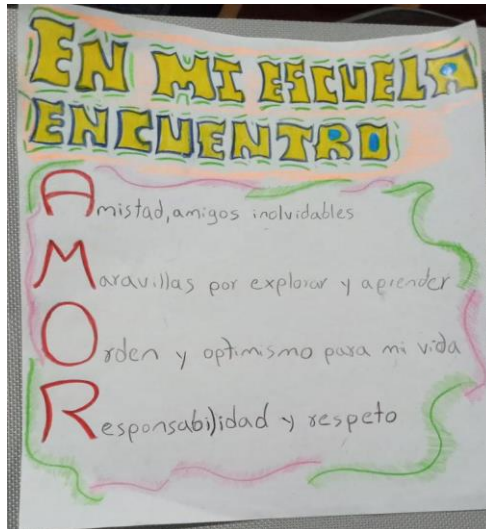 EN MI ESCUELA
ENCUENTRO
Amistad, amigos inolvidables
Maravillas por explorar y aprender
Orden y optimismo para mi vida
Responsabilidad y respeto